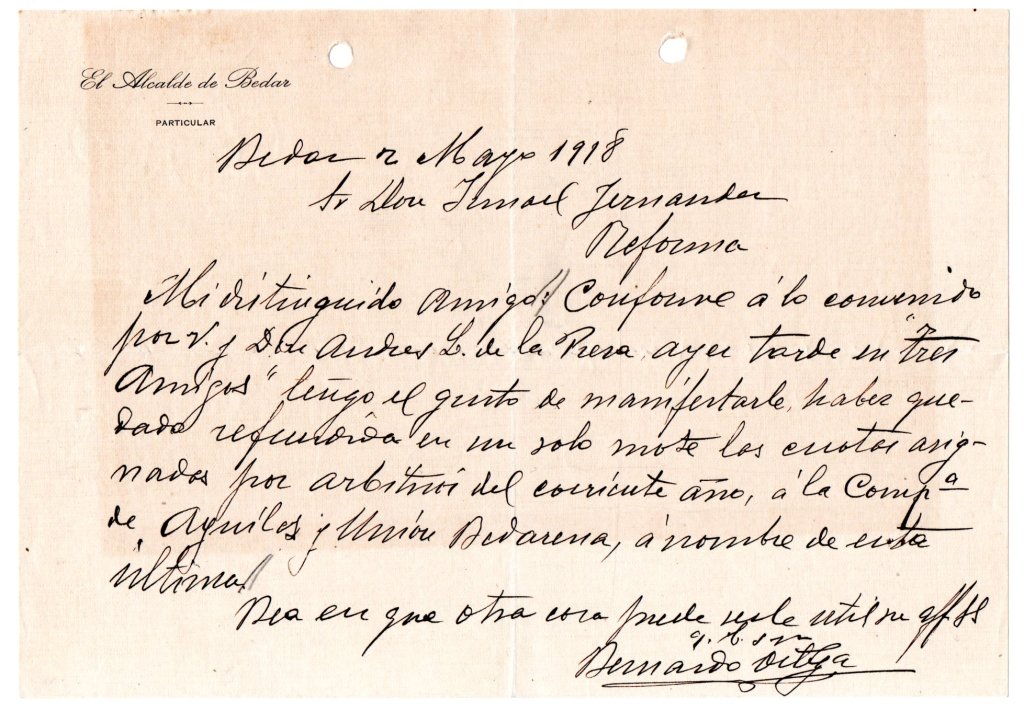 El Alcalde de Bedar
PARTICULAR
Bedar 2 Mayo 1918
Sr Don Ismael Fernandez
Reforma
Mi distinguido Amigo: Conforme á lo convenido
por V. y Don Andres L. de la Presa, ayer tarde en "Tres
Amigos" tengo el gusto de manifestarle, haber que-
dado refundida en un solo mote las cuotas asig-
nadas por arbitrios del corriente año, á la Compª
de Aguilas y Unión Bedarena, á nombre de esta
última.
Vea en que otra cosa puede serle util su aff. SS
q. b. s m
Bernardo Ortega